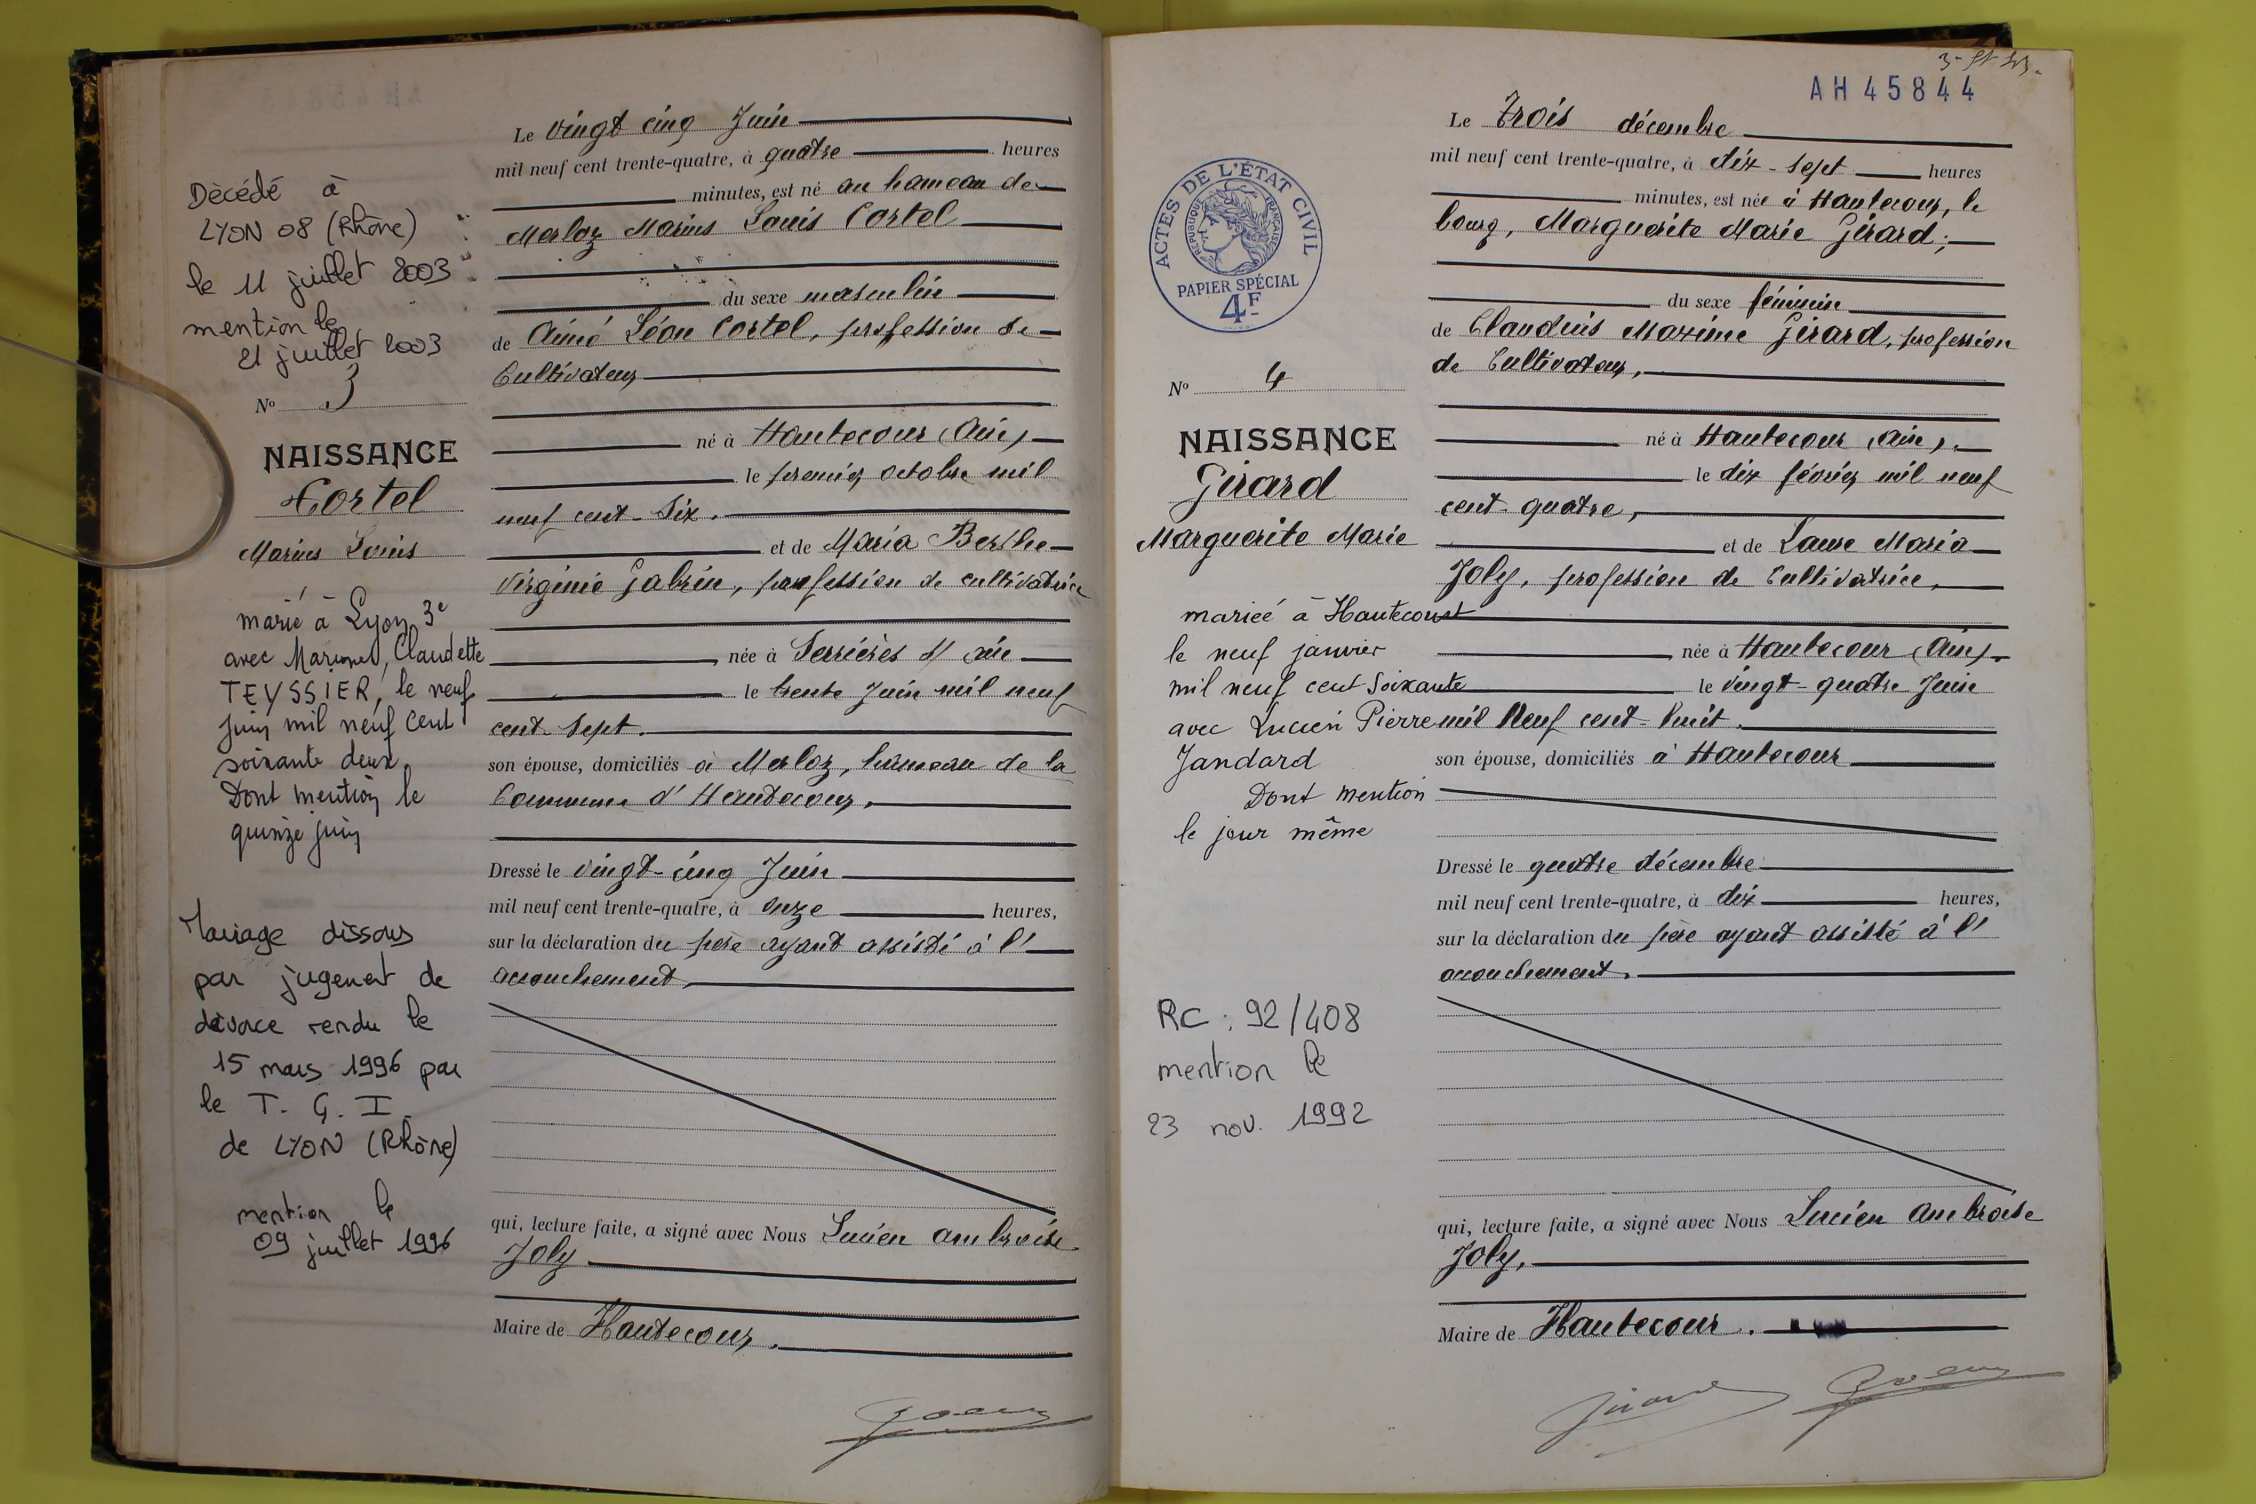 Décédé à
LYON 08 (Rhône)
le 11 juillet 2003
mention le
21 juillet 2003
N° 3
NAISSANCE
Cortel
Marius Louis
marié à Lyon 3e
avec Claudette
TEYSSIER, le neuf
juin mil neuf cent
soixante deux
Dont mention le
quinze juin
Mariage dissous
par jugement de
divorce rendu le
15 mars 1996 par
le T. G. I.
de LYON (Rhône)
mention le
09 juillet 1996
Le vingt cinq Juin
mil neuf cent trente-quatre, à quatre heures
minutes, est né au hameau de
Merloz Marius Louis Cortel
du sexe masculin
de Aimé Léon Cortel, profession de
Cultivateur
né à Hautecour (Ain)
le premier octobre mil
neuf cent-six.
et de Maria Berthe
Virginie Gabrin, profession de cultivatrice
née à Serrières s/ Ain
le trente Juin mil neuf
cent-sept.
son épouse, domiciliés à Merloz, hameau de la
Commune d'Hautecour,
Dressé le vingt-cinq Juin
mil neuf cent trente-quatre, à onze heures,
sur la déclaration du père ayant assisté à l'
accouchement,
qui, lecture faite, a signé avec Nous Lucien Ambroise
Joly
Maire de Hautecour.
AH 45844
ACTES DE L'ÉTAT CIVIL
RÉPUBLIQUE FRANÇAISE
PAPIER SPÉCIAL
4F
N° 4
NAISSANCE
Girard
Marguerite Marie
mariée à Hautecourt
le neuf janvier
mil neuf cent soixante
avec Lucien Pierre
Jandard
Dont mention
le jour même
RC : 92/408
mention le
23 nov. 1992
Le Trois décembre
mil neuf cent trente-quatre, à dix-sept heures
minutes, est née à Hautecour, le
bourg, Marguerite Marie Girard;
du sexe féminin
de Claudius Maxime Girard, profession
de Cultivateur,
né à Hautecour (Ain),
le dix février mil neuf
cent-quatre,
et de Laure Maria
Joly, profession de Cultivatrice,
née à Hautecour (Ain),
le vingt-quatre Juin
mil Neuf cent-huit.
son épouse, domiciliés à Hautecour
Dressé le quatre décembre
mil neuf cent trente-quatre, à dix heures,
sur la déclaration du père ayant assisté à l'
accouchement.
qui, lecture faite, a signé avec Nous Lucien Ambroise
Joly,
Maire de Hautecour.
Girard